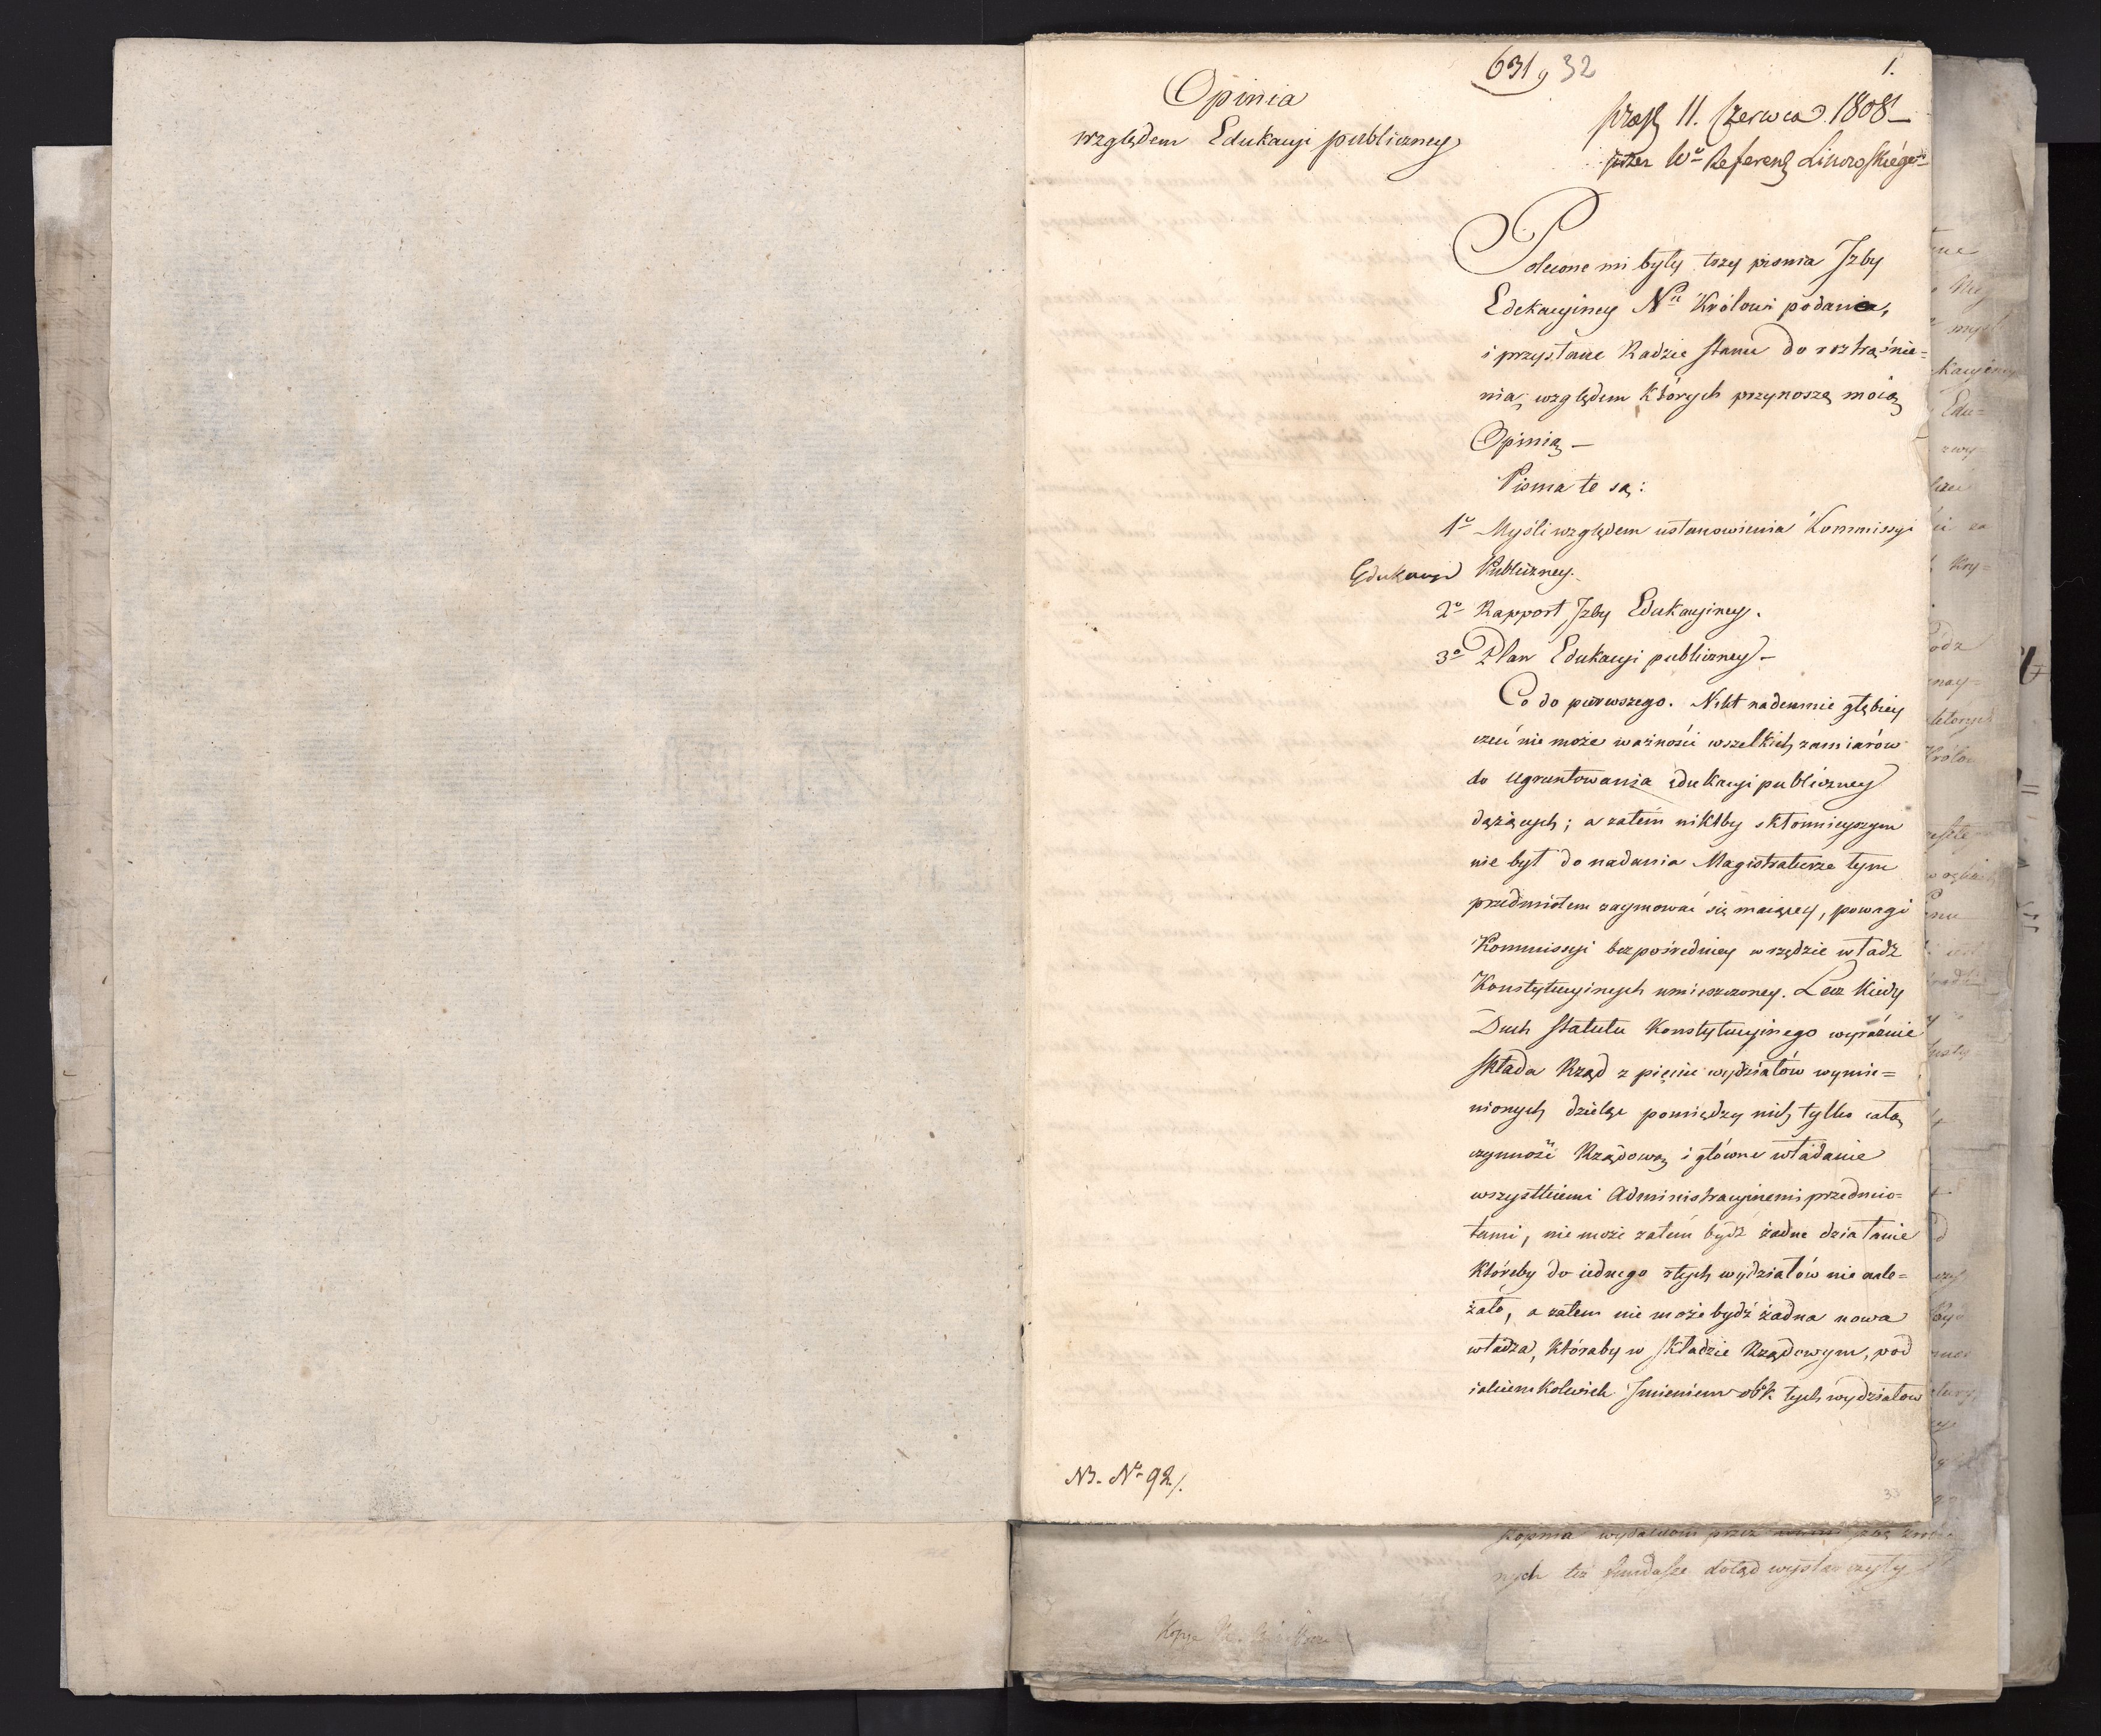 631 g 32
1.
Opinia
względem Edukacyi publiczney
11. Czerwca 1808 –
przez Wo Referend. Linowskiégo –
Polecone mi były trzy pisma Jzby
Edukacyiney Nu Królowi podania,
i przysłane Radzie stanu do roztrząśnie=
nia, względem których przynoszę moią
Opinią –
Pisma te są:
1o Myśli względem ustanowienia Kommissyi
Edukacyi Publiczney.
2o Rapport Jzby Edukacyiney.
3o Plan Edukacyi publiczney –
Co do pierwszego. Nikt nademnie głębiey
czuć nie może ważności wszelkich zamiarów
do ugruntowania edukacyi publiczney
dążących; a zatém niktby skłonnieyszym
nie był do nadania Magistraturze tym
przedmiotem zaymować się maiącey, powagi
Kommissyi bezpośredniey w rzędzie władz
Konstytucyinych umieszczoney. Lecz kiedy
Duch Statutu Konstytucyinego wyraźnie
składa Rząd z pięciu wydziałów wymie=
nionych dzieląc pomiędzy nich tylko całą
czynność Rządową i główne władanie
wszystkiemi Administracyinemi przedmio=
tami, nie może zatém bydź żadne działanie
któreby do iednego z tych wydziałów nie nale=
żało, a zatem nie może bydź żadna nowa
władza, któraby w składzie Rządowym, pod
iakiemkolwiek Jmieniem obok tych wydziałów
NB. No 92/.
33
wydatkom przez
nych też fundusze dotąd wystarczyły
Kopia